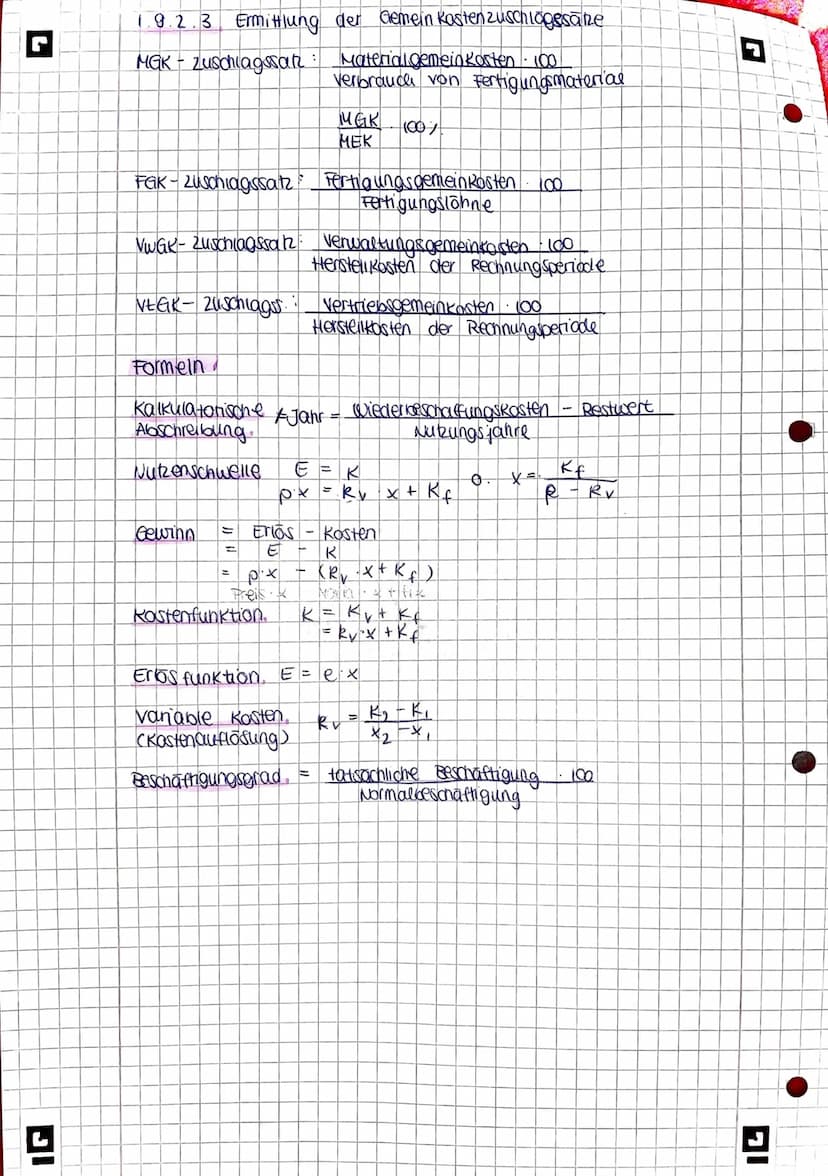 1.9.2.3 Ermittlung der Gemeinkostenzuschlagssätze
MGK - Zuschlagssatz : Materialgemeinkosten · 100
Verbrauch von Fertigungsmaterial
MGK · 100%
MEK
FGK - Zuschlagssatz : Fertigungsgemeinkosten · 100
Fertigungslöhne
VwGK - Zuschlagssatz : Verwaltungsgemeinkosten · 100
Herstellkosten der Rechnungsperiode
VtGK - Zuschlagss. : Vertriebsgemeinkosten · 100
Herstellkosten der Rechnungsperiode
Formeln
Kalkulatorische Abschreibung. /Jahr = Wiederbeschaffungskosten - Restwert
Nutzungsjahre
Nutzenschwelle E = K
p·x = kv · x + Kf o. x = Kf
p - kv
Gewinn = Erlös - Kosten
= E - K
= p·x - (kv · x + Kf)
Preis · x
Kostenfunktion. K = Kv + Kf
= kv·x + Kf
Erlösfunktion. E = e·x
Variable Kosten. kv = K2 - K1
(Kostenauflösung) x2 - x1
Beschäftigungsgrad. = tatsächliche Beschäftigung · 100
Normalbeschäftigung